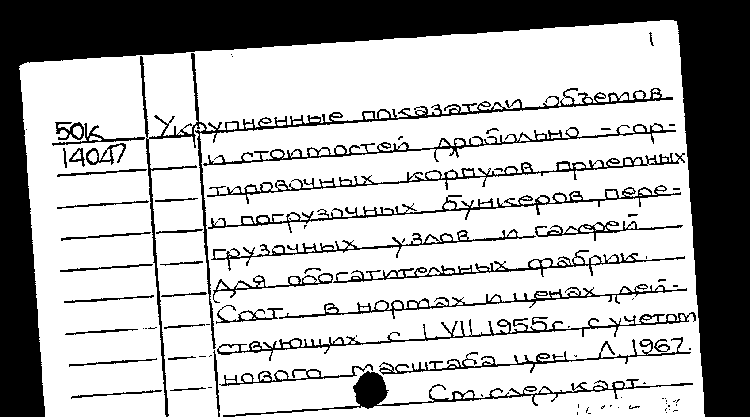 1
50к Укрупненные показатели объемов
14047 и стоимостей дробильно-сор-
тировочных корпусов, приемных
и погрузочных бункеров, пере-
грузочных узлов и галерей
для обогатительных фабрик.
Сост. в нормах и ценах, дей-
ствующих с 1.VII.1955г., с учетом
нового масштаба цен. Л., 1967.
См. след. карт.